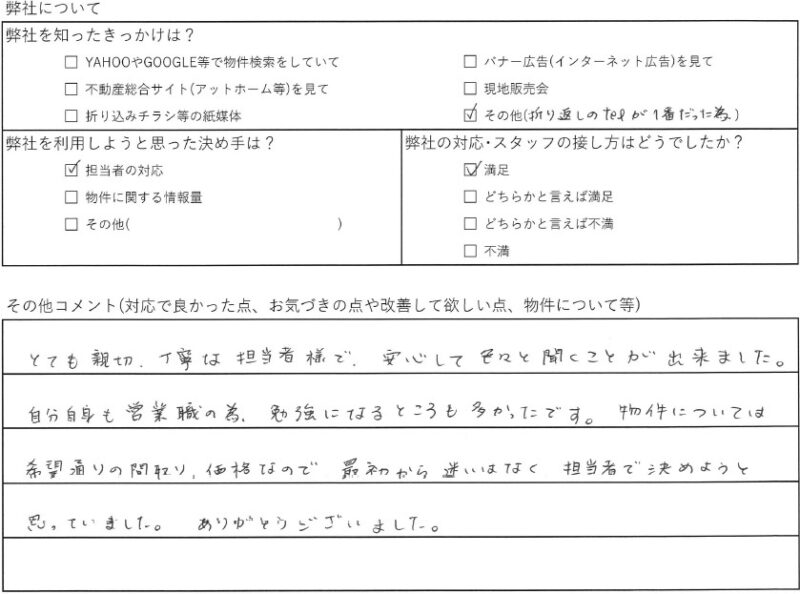 弊社について
弊社を知ったきっかけは？
☐ YAHOOやGOOGLE等で物件検索をしていて
☐ バナー広告(インターネット広告)を見て
☐ 不動産総合サイト(アットホーム等)を見て
☐ 現地販売会
☐ 折り込みチラシ等の紙媒体
☑ その他(折り返しのtelが1番だった為)
弊社を利用しようと思った決め手は？
☑ 担当者の対応
☐ 物件に関する情報量
☐ その他( )
弊社の対応・スタッフの接し方はどうでしたか？
☑ 満足
☐ どちらかと言えば満足
☐ どちらかと言えば不満
☐ 不満
その他コメント(対応で良かった点、お気づきの点や改善して欲しい点、物件について等)
とても親切、丁寧な担当者様で、安心して色々と聞くことが出来ました。
自分自身も営業職の為、勉強になるところも多かったです。物件については
希望通りの間取り、価格なので最初から迷いはなく担当者で決めようと
思っていました。ありがとうございました。